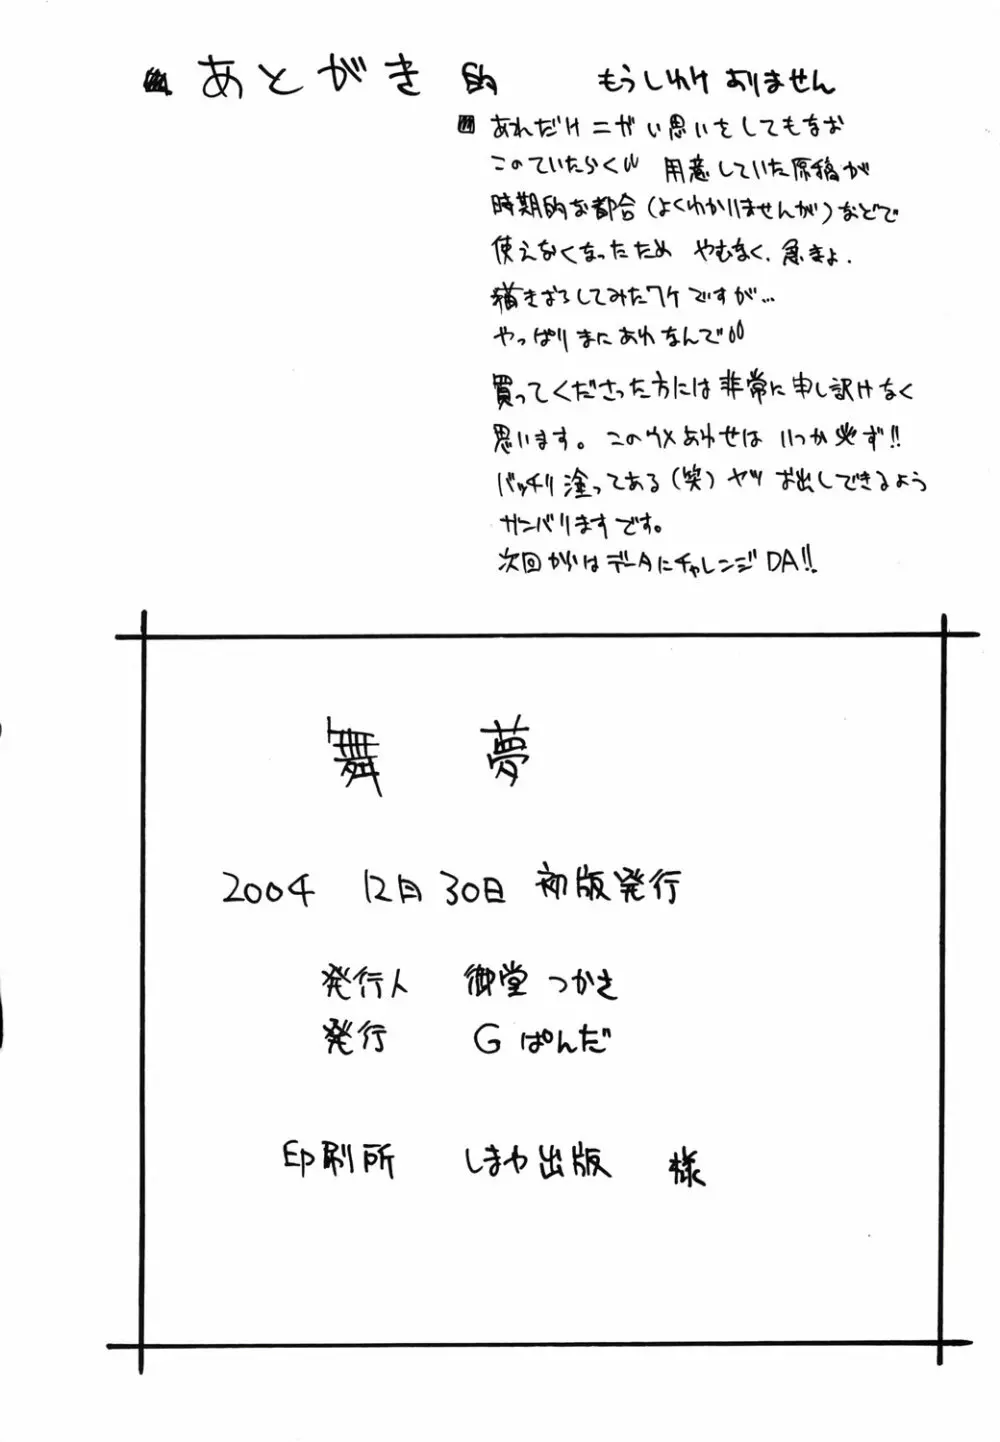 あとがき 的
もうしわけありません
あれだけニガい思いをしてもなお
このていたらく 用意していた原稿が
時期的な都合(よくわかりませんが)などで
使えなくなったため やむなく、急きょ、
描きおろしてみたワケですが…
やっぱりまにあわなんで
買ってくださった方には非常に申し訳けなく
思います。このウメあわせは いつか必ず!!
バッチリ塗ってある(笑)ヤツ お出しできるよう
ガンバリますです。
次回からはデータにチャレンジDA!!
舞 夢
2004 12月30日 初版発行
発行人 御堂 つかさ
発行 G ぱんだ
印刷所 しまや出版 様